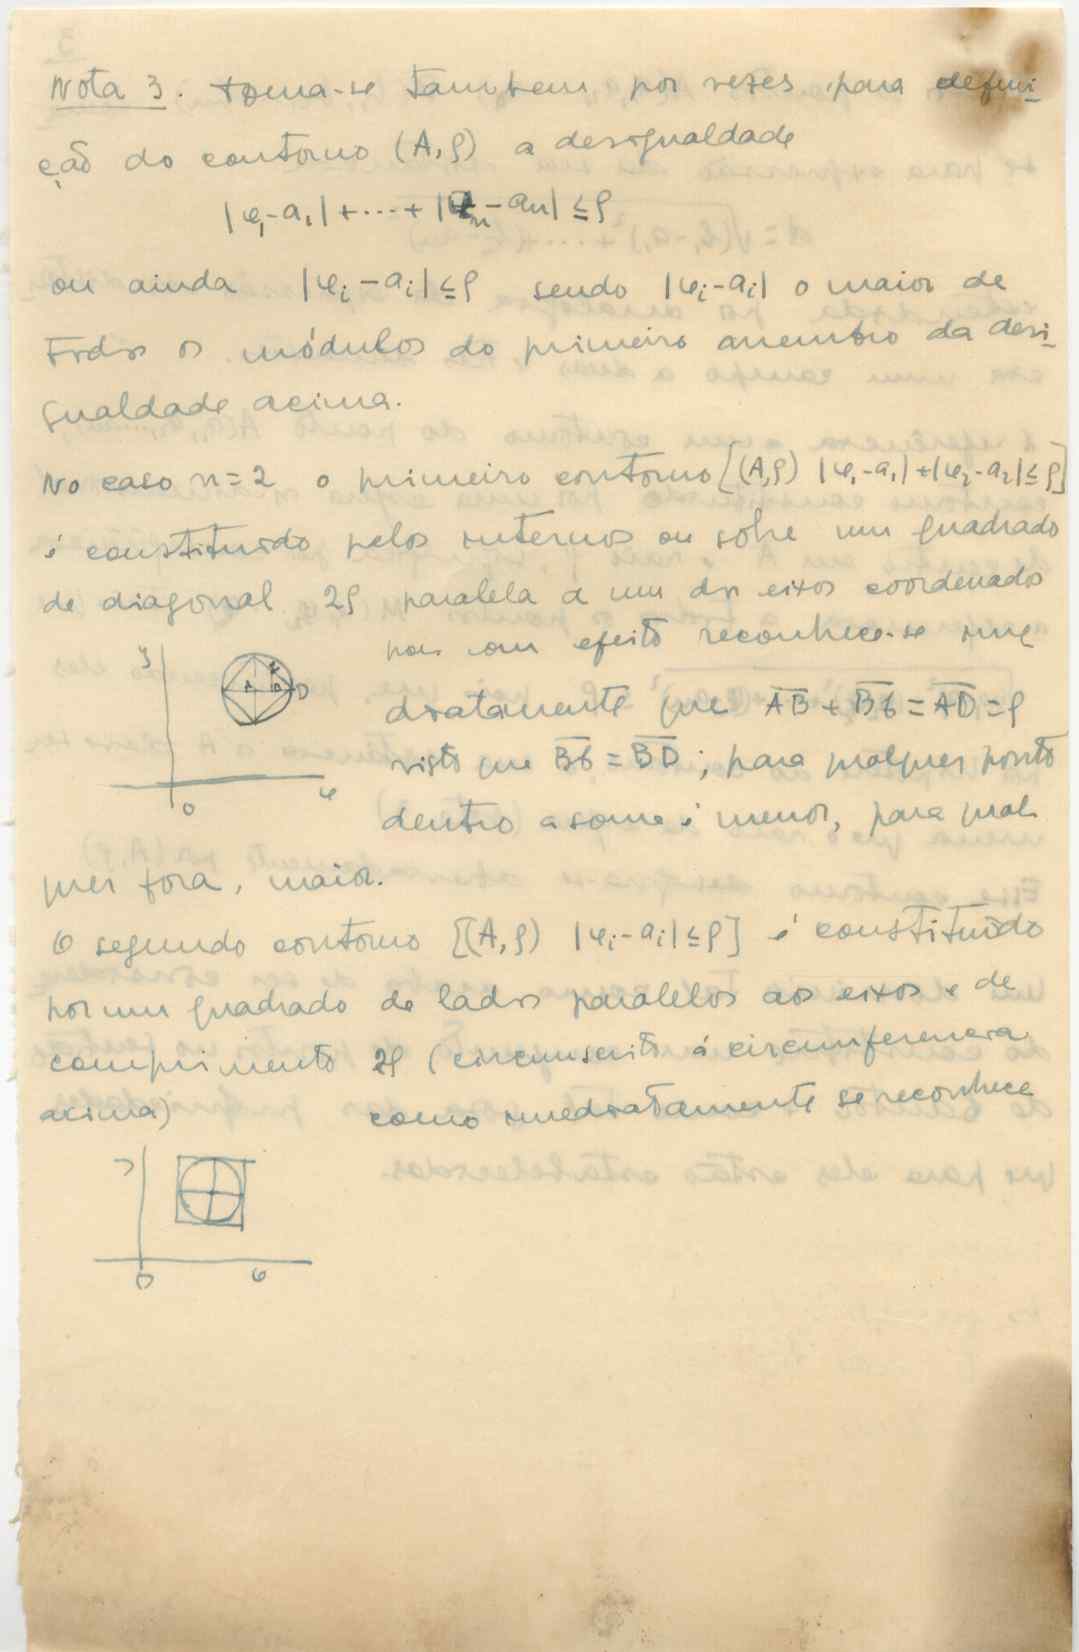 Nota 3. toma-se tambem por vezes para defini-
ção do contorno (A,ρ) a desigualdade
|φ₁-a₁| + ... + |φₙ - aₙ| ≤ ρ
ou ainda |φᵢ - aᵢ| ≤ ρ sendo |φᵢ-aᵢ| o maior de
todos os módulos do primeiro membro da desi-
gualdade acima.
No caso n=2 o primeiro contorno [(A,ρ) |φ₁-a₁|+|φ₂-a₂| ≤ ρ]
é constituido pelos internos ou sobre um quadrado
de diagonal 2ρ paralela a um dos eixos coordenados
pois com efeito reconhece-se ime
diatamente que A̅B̅ + B̅6̅ = A̅D̅ = ρ
visto que B̅6̅ = B̅D̅; para qualquer ponto
dentro a soma é menor, para qual
quer fora, maior.
y
A B D
0 φ
O segundo contorno [(A,ρ) |φᵢ-aᵢ| ≤ ρ] é constituido
por um quadrado de lados paralelos aos eixos e de
comprimento 2ρ (circunscrito á circunferencia
acima) como imediatamente se reconhece
0 φ